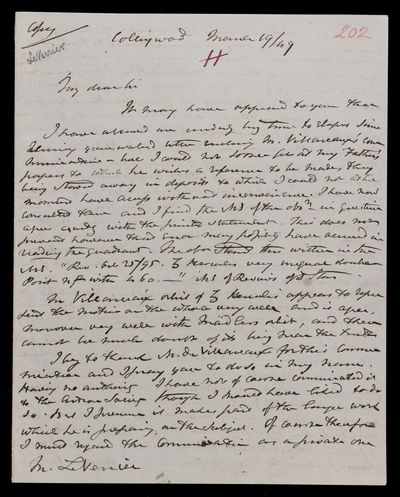 Copy
LeVerrier
202
Collingwood March 19/49
H
My dear Sir
It may have appeared to you that
I have allowed an unduly long time to elapse since
receiving your note enclosing M. Villarceaux's com
munication - but I could not sooner get at my Father's
papers to which he wishes a reference to be made they
being stored away in deposits to which I could not at the
moment have access without inconvenience. I have now
consulted them and I find the MS of the obsn in question
agree exactly with the printed statement. This does not
prevent however that error may possibly have occurred in
reading the quadrant. The obsn stands thus written in the
MS. "Rev. ζ Herculis very unequal double
Posit nf with 460. —" MS of Reviews of d Stars
M Villarceaux orbit of ζ Herculis appears to repre
sent the motion on the whole very well and it agrees
moreover very well with Madlers orbit, and there
cannot be much doubt of its being near the truth
I beg to thank M. de Villarceaux for this commu
nication and I pray you to do so in my name.
Having no authority I have not of course communicated it
to the Astron Society though I should have liked to do
so. As I presume it makes part of the larger work
which he is preparing on the subject. Of course therefore
I must regard the communication as a private one
M. LeVerrier